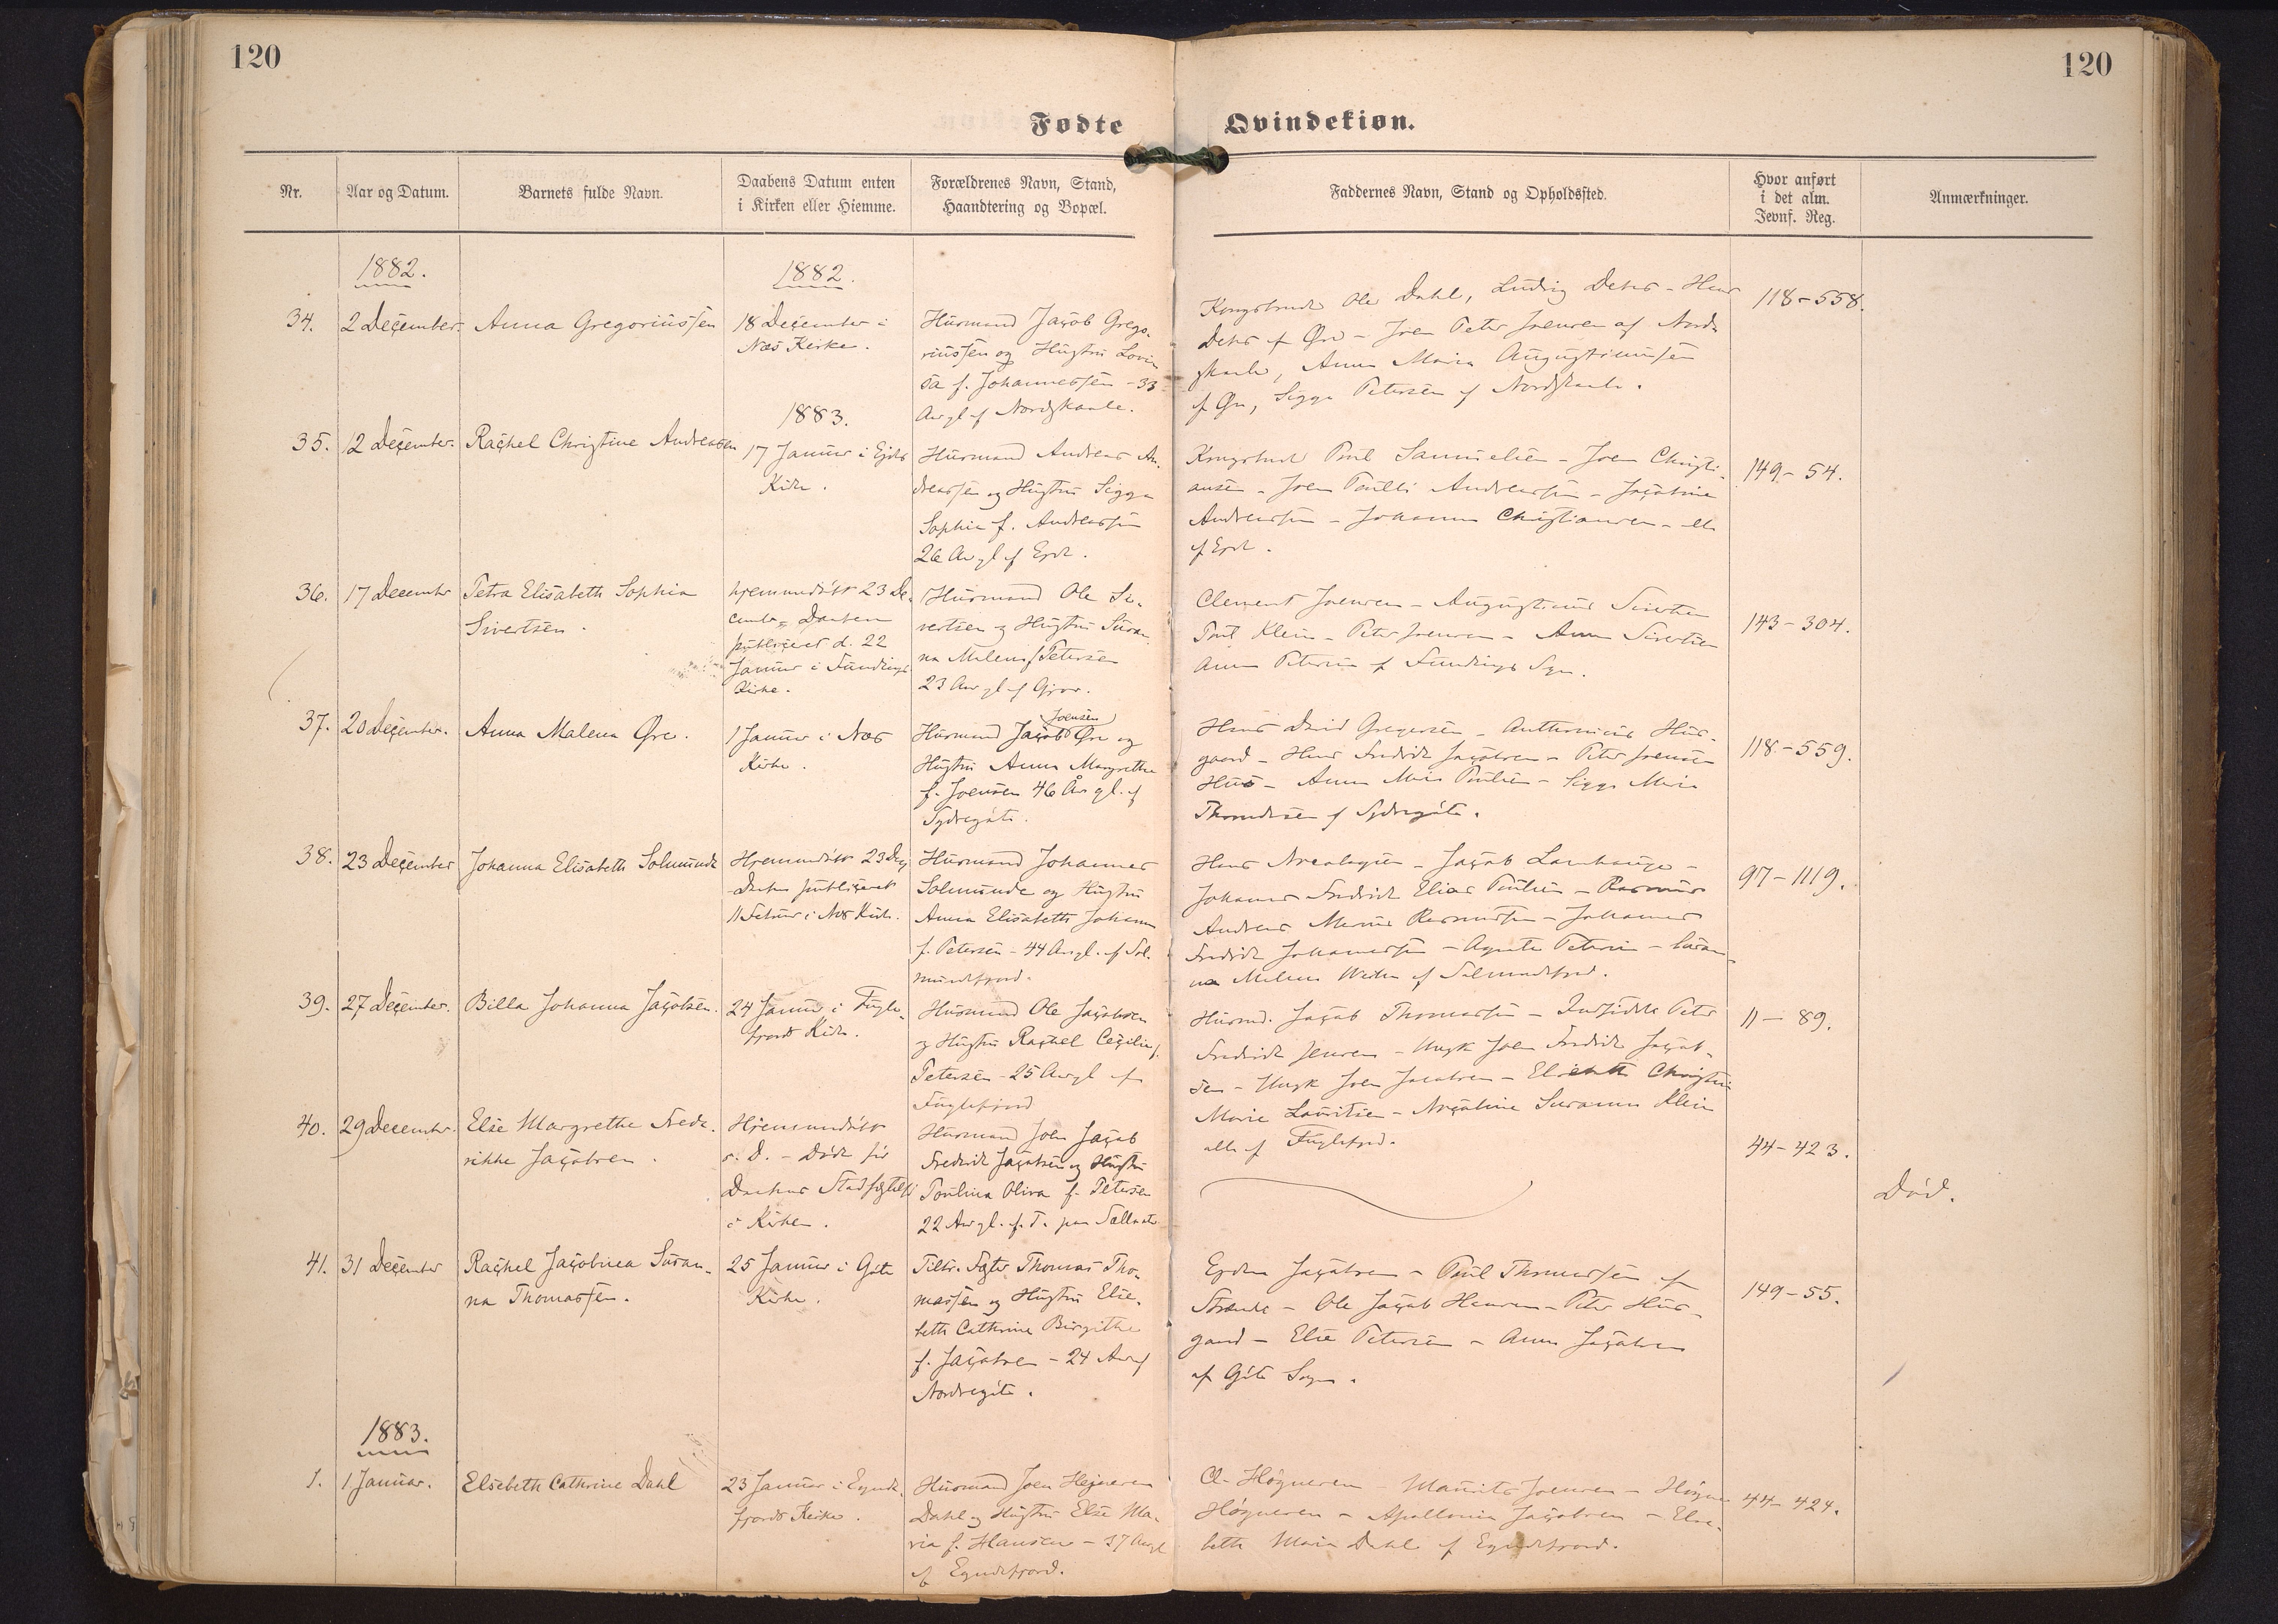 120
120
Fødte
Qvindekiøn.
Nr.
Aar og Datum.
Barnets fulde Navn.
Daabens Datum enten
i Kirken eller Hiemme.
Forældrenes Navn, Stand,
Haandtering og Bopæl.
Faddernes Navn, Stand og Opholdssted.
Hvor anført
i det alm.
Jevnf. Reg.
Anmærkninger.
1882.
1882.
34.
2 December.
Anna Gregoriussen
18 December i
Næs Kirke.
Husmand Jacob Grego-
riussen og Hustru Lovi
sa f. Johannessen - 33
Aar gl. af Nordskaale.
Ole Dahl, Ludvig
Joen Peter Joensen af Nord-
skaale, Anna Maria Augustinussen
Sigga Petersen af Nordskaale.
118-558.
1883.
35.
12 December.
Rachel Christine Andreassen
17 Januar i Ejde
Kirke.
Husmand Andreas An-
dreassen og Hustru Sigga
Sophie f. Andreassen
26 Aar gl. af Ejde.
Poul Samuelsen - Joen Christi-
ansen - Joen Poulli Andreassen - Jacobine
Andreassen - Johanne Christiansen - alle
af Ejde.
149-54.
36.
17 December
Petra Elisabeth Sophia
Sivertsen.
hjemmedøbt 23 De-
cember - Daaben
publiceret d. 22
Januar i Fundings
Kirke.
Husmand Ole Si-
vertsen og Hustru Susan-
na Malene f. Petersen
23 Aar gl. af Gjov.
Clement Joensen - Augustinus Sivertsen
Poul Klein - Peter Joensen - Anna Sivertsen
Anna Petersen af Fundings Sogn.
143-304.
37.
20 December.
Anna Malena Øre.
1 Januar i Næs
Kirke.
Joensen
Husmand Jacob Øre og
Hustru Anna Margrethe
f. Joensen 46 Aar gl. af
Sydregøte.
Hans David Gregersen - Anthonius Hus-
gaard - Hans Fredrik Jacobsen - Peter Joensen
Hus - Anna Marie Poulsen - Sigga Marie
Thomassen af Sydregøte.
118-559.
38.
23 December
Johanna Elisabeth Solmunde
Hjemmedøbt 23 Dec.
Daaben publiceret
11 Februar i Næs Kirke.
Husmand Johannes
Solmunde og Hustru
Anna Elisabeth Johanna
f. Petersen - 44 Aar gl. af Sol-
mundefjord.
Hans - Jacob Lamhauge -
Johannes Fredrik Elias Poulsen - Rasmus
Andreas Marius Rasmussen - Johannes
Fredrik Johannessen - Agnete Petersen - Susan-
na Malene af Solmundefjord.
97-1119.
39.
27 December.
Billa Johanna Jacobsen.
24 Januar i Fugle-
fjords Kirke.
Husmand Ole Jacobsen
og Hustru Rachel Cecilie f.
Petersen - 25 Aar gl. af
Fuglefjord
Husmd. Jacob Thomassen - Indsidder Peter
Fredrik Jensen - Ungk. Joen Fredrik Jacob-
sen - Ungk. Joen Jacobsen - Elsebeth Christine
Marie Lauritsen - Susanne Klein
alle af Fuglefjord.
11-89.
40.
29 December.
Else Margrethe Frede-
rikke Jacobsen.
Hjemmedøbt
s. D. - Døde før
Daabens Stadfæstelse
i Kirken.
Husmand Joen Jacob
Fredrik Jacobsen og Hustru
Poulina Oliva f. Petersen
22 Aar gl. af
44-423.
Død.
41.
31 December
Rachel Jacobina Susan-
na Thomassen.
25 Januar i Gøte
Kirke.
Thomas Tho-
massen og Hustru Else-
beth Cathrine Birgithe
f. Jacobsen - 24 Aar af
Nordregøte.
Jacobsen - Poul Thomassen af
Ole Jacob Hansen - Peter Hus-
gaard - Else Petersen - Anna Jacobsen
af Gøte Sogn.
149-55.
1883.
1.
1 Januar.
Elsebeth Cathrine Dahl
23 Januar i Eynde-
fjords Kirke.
Husmand Joen Højnesen
Dahl og Hustru Else Ma-
ria f. Hansen - 37 Aar gl.
af Eyndefjord.
Høgnesen - Maurits Joensen - Høgne
Høgnesen - Apollonia Jacobsen - Else-
beth Maria Dahl af Eyndefjord.
44-424.